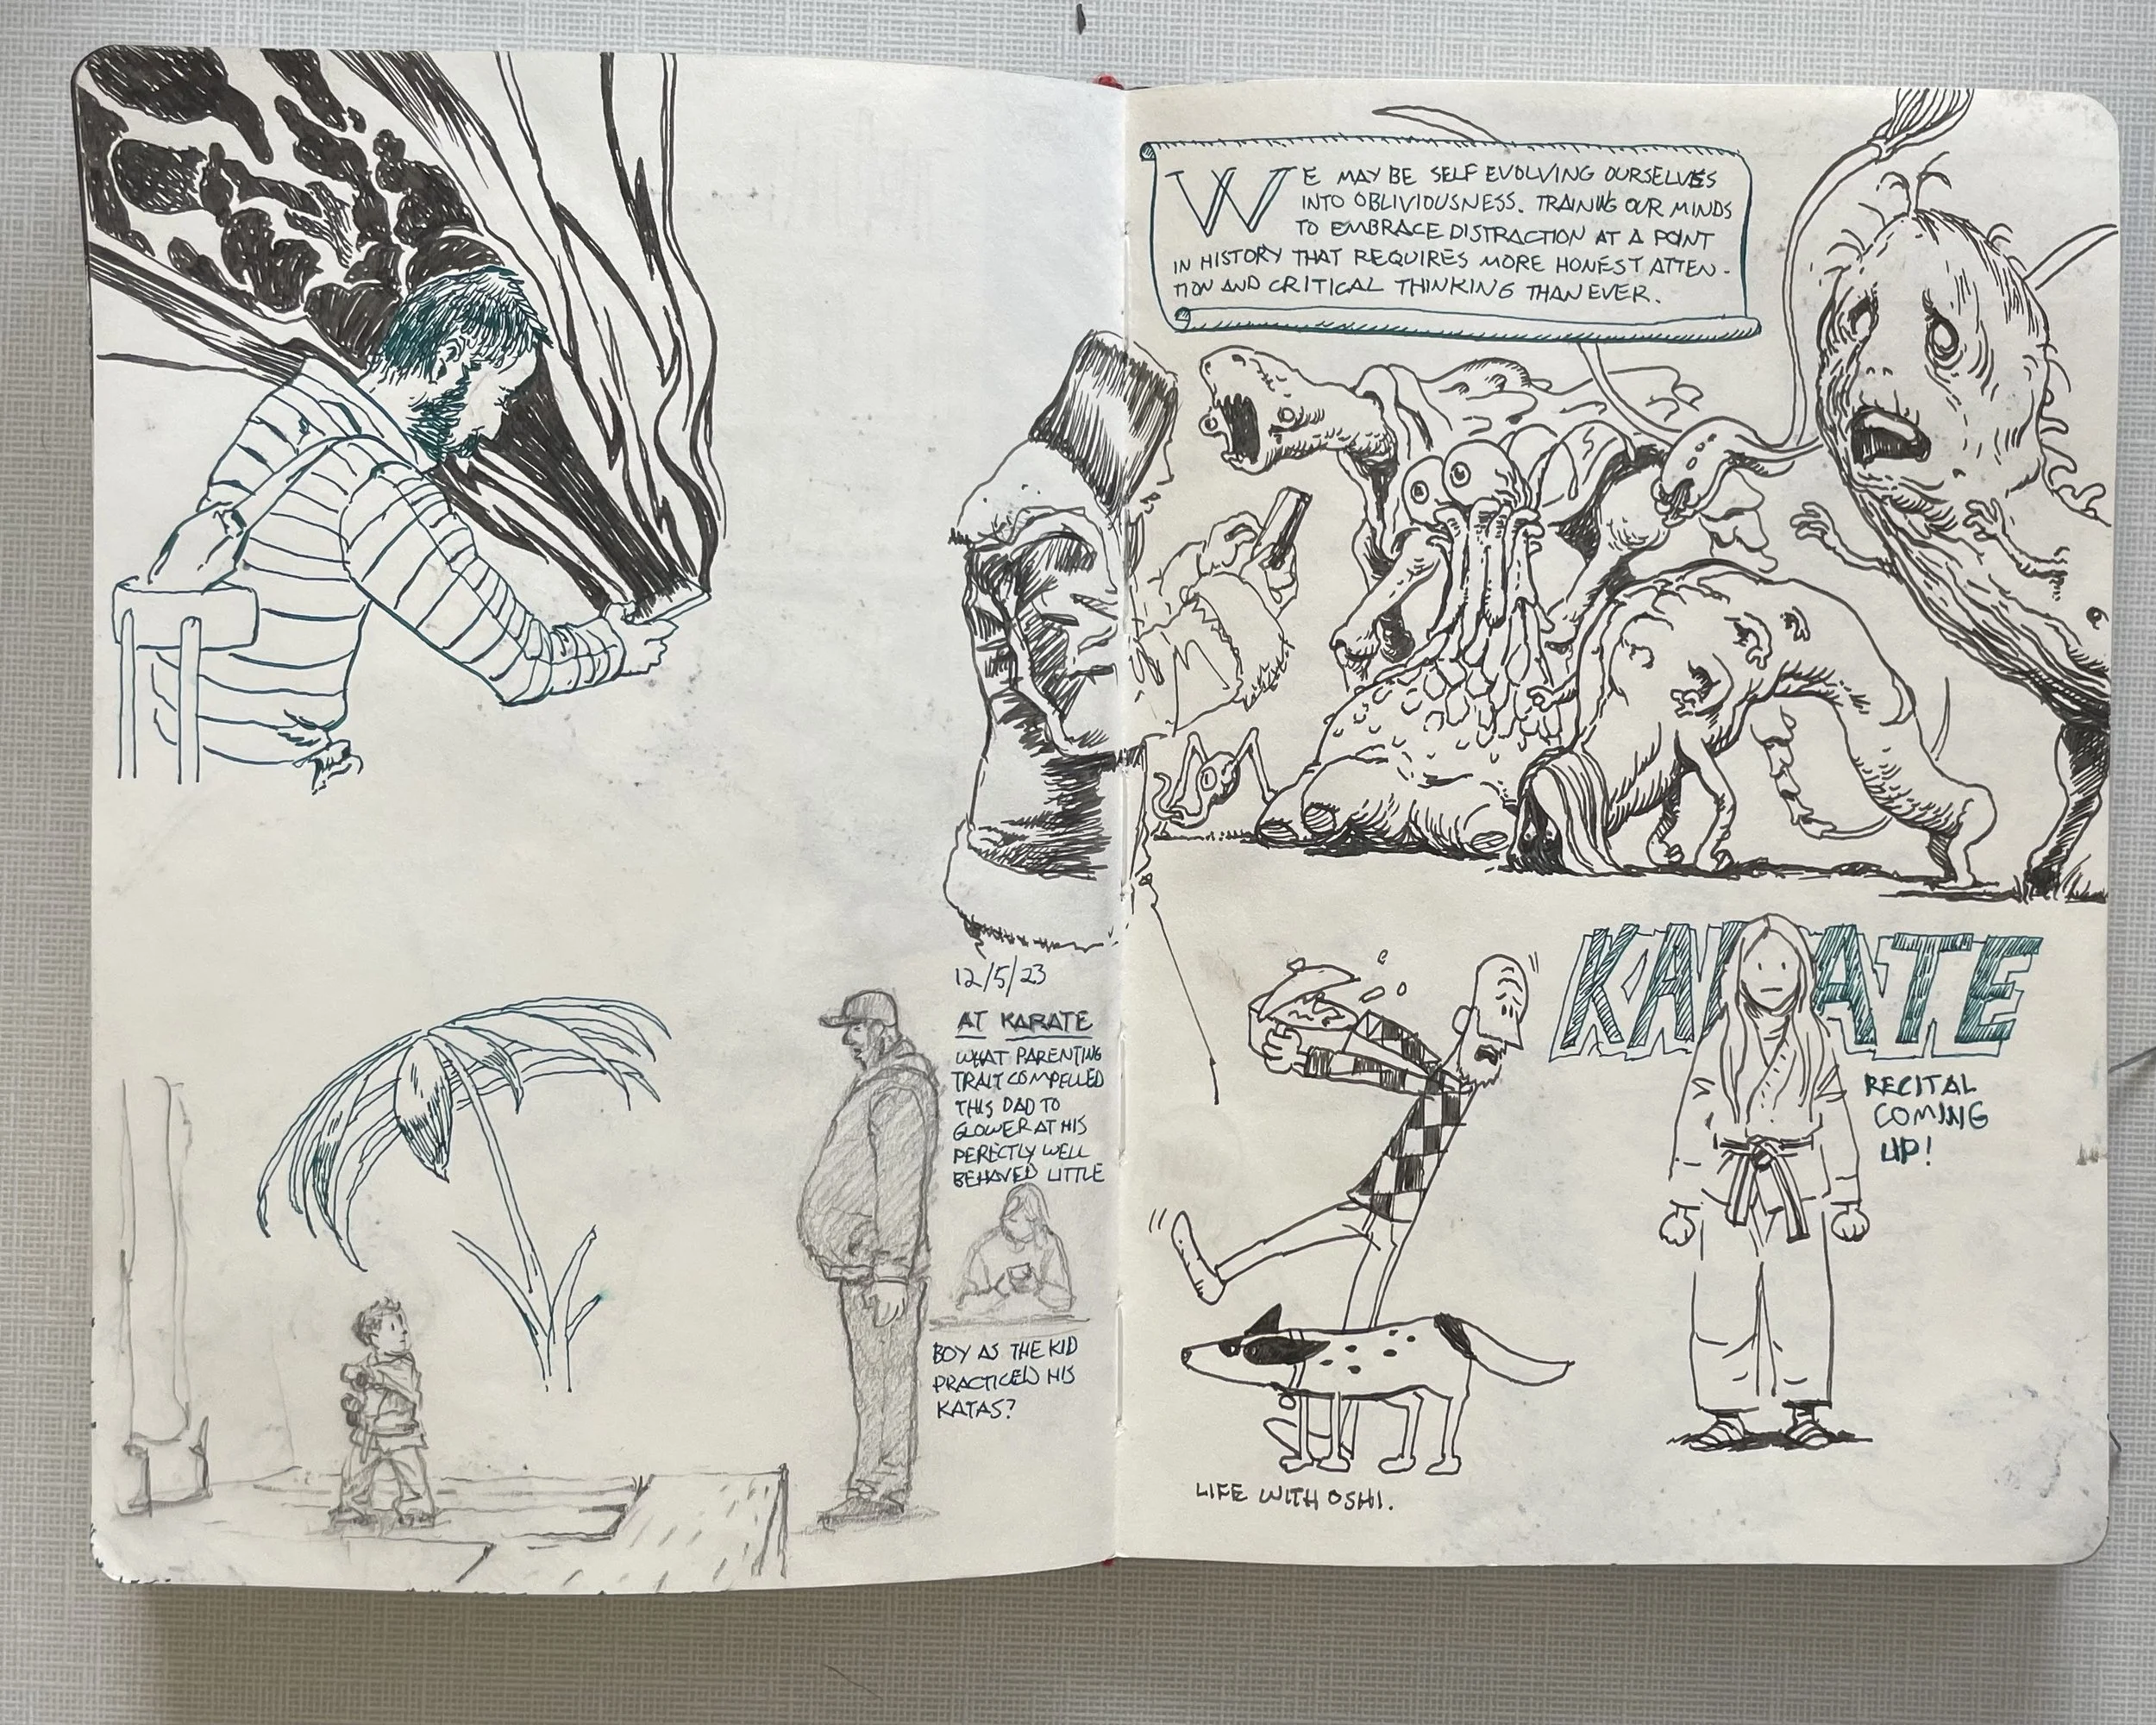 12/5/23
AT KARATE
WHAT PARENTING
TRAIT COMPELLED
THIS DAD TO
GLOWER AT HIS
PERECTLY WELL
BEHAVED LITTLE
BOY AS THE KID
PRACTICED HIS
KATAS?
WE MAY BE SELF EVOLVING OURSELVES
INTO OBLIVIOUSNESS. TRAINING OUR MINDS
TO EMBRACE DISTRACTION AT A POINT
IN HISTORY THAT REQUIRES MORE HONEST ATTEN-
TION AND CRITICAL THINKING THAN EVER.
KARATE
RECITAL
COMING
UP!
LIFE WITH OSHI.